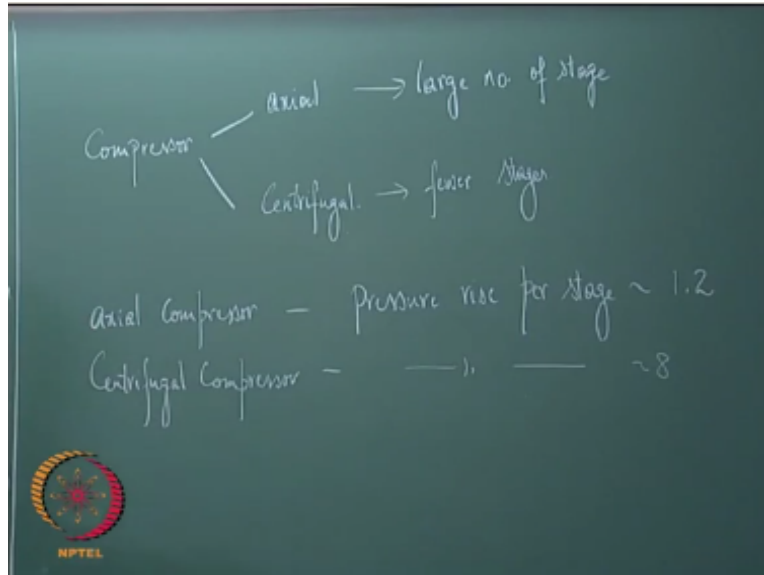 axial → large no. of stage
Compressor
Centrifugal. → fewer stages
axial Compressor – Pressure rise per stage ~ 1.2
Centrifugal Compressor – —〃— ~8
NPTEL